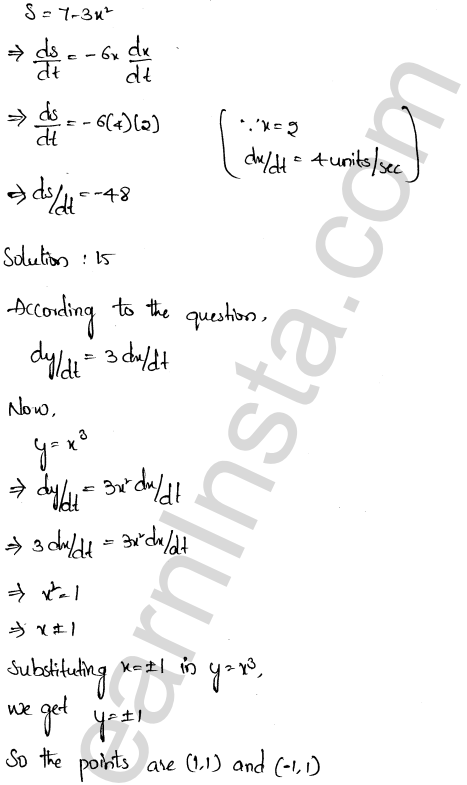 S = 7-3x²
⇒ ds/dt = -6x dx/dt
⇒ ds/dt = -6(4)(2) (∵ x = 2
dx/dt = 4 units/sec)
⇒ ds/dt = -48
Solution : 15
According to the question,
dy/dt = 3 dx/dt
Now,
y = x³
⇒ dy/dt = 3x² dx/dt
⇒ 3 dx/dt = 3x² dx/dt
⇒ x² = 1
⇒ x ± 1
Substituting x = ±1 in y = x³,
we get y = ±1
So the points are (1,1) and (-1,1)
earnInsta.com